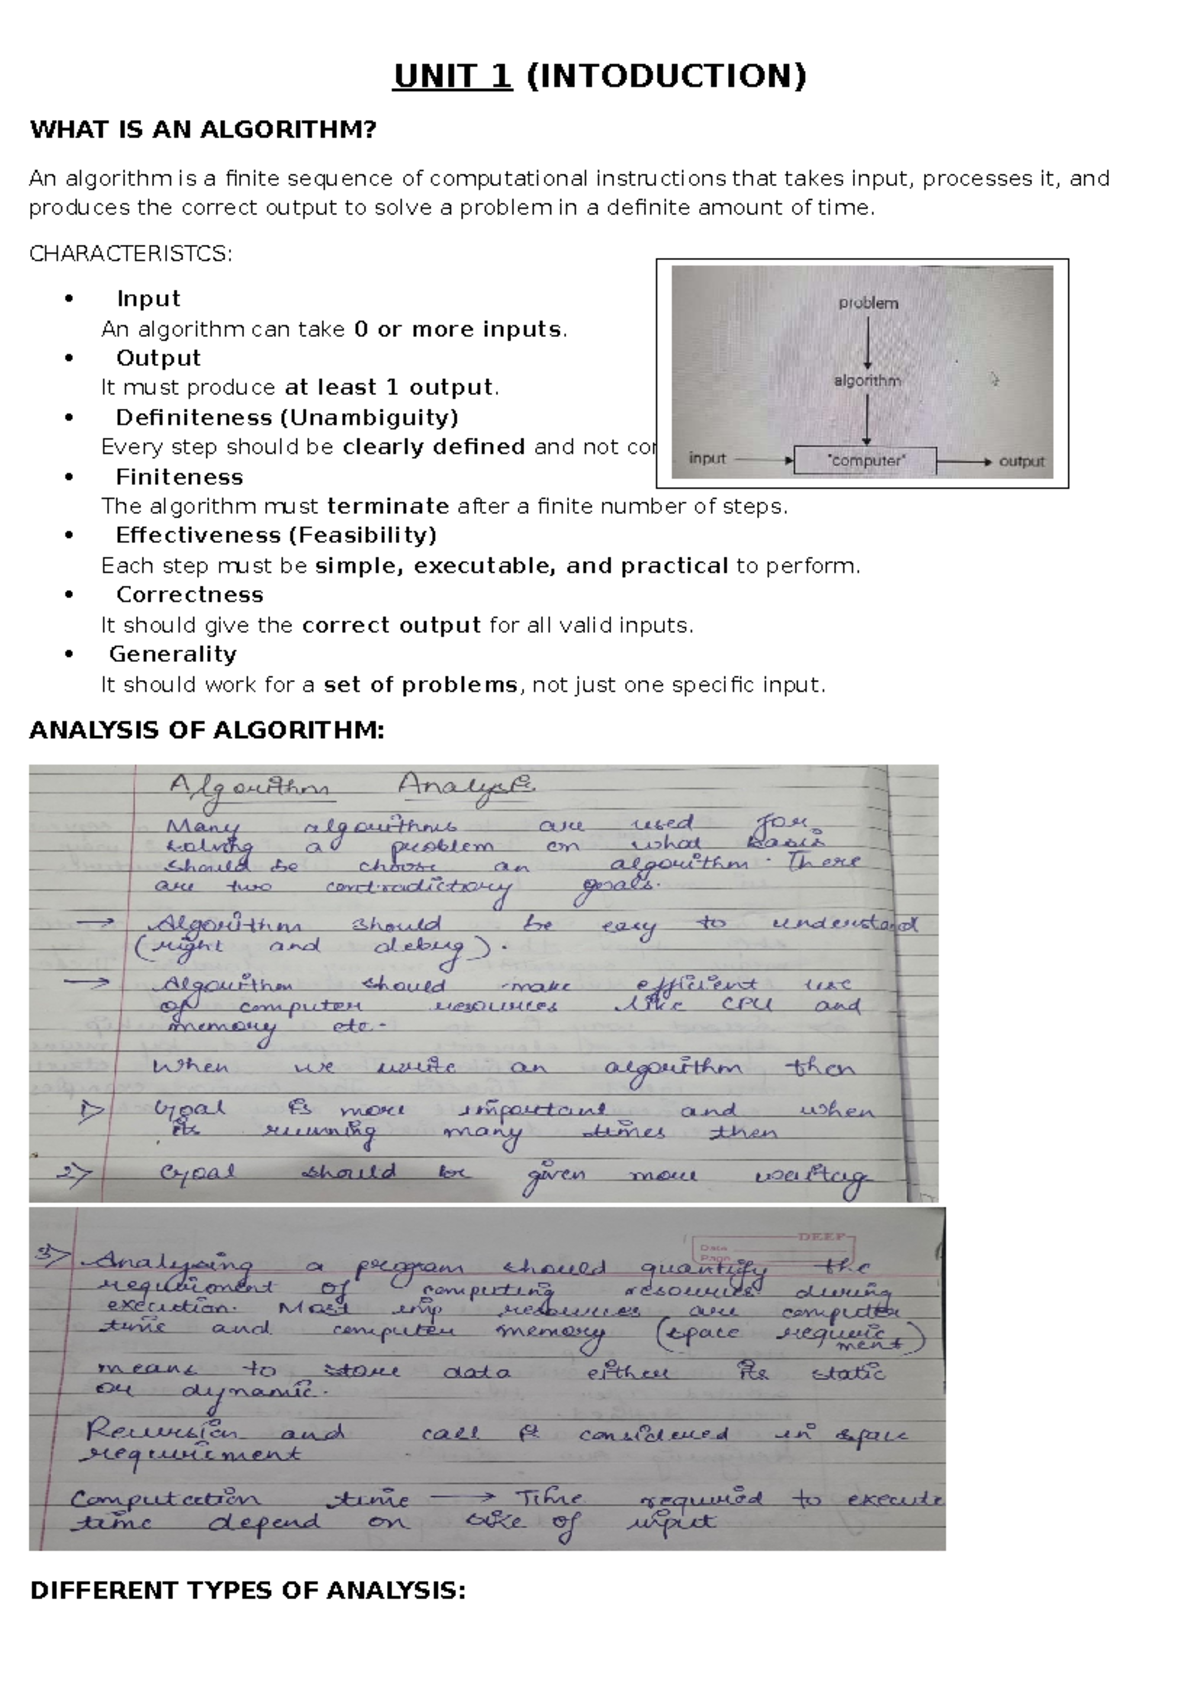 UNIT 1 (INTODUCTION)
WHAT IS AN ALGORITHM?
An algorithm is a finite sequence of computational instructions that takes input, processes it, and
produces the correct output to solve a problem in a definite amount of time.
CHARACTERISTCS:
• Input
An algorithm can take 0 or more inputs.
• Output
It must produce at least 1 output.
• Definiteness (Unambiguity)
Every step should be clearly defined and not con
• Finiteness
The algorithm must terminate after a finite number of steps.
• Effectiveness (Feasibility)
Each step must be simple, executable, and practical to perform.
• Correctness
It should give the correct output for all valid inputs.
• Generality
It should work for a set of problems, not just one specific input.
problem
algorithm
input
"computer"
output
ANALYSIS OF ALGORITHM:
Algorithm Analysis
Many algorithms are used for
solving a problem on what basis
should be choose an algorithm. There
are two contradictory goals.
→ Algorithm should be easy to understand
(right and debug).
→ Algorithm should make efficient use
of computer resources like CPU and
memory etc.
When we write an algorithm then
1> Goal is more important and when
its running many times then
2> Goal should be given more waitag
DEEP
Date
Page
3> Analysing a program should quantify the
requirement of computing resources during
execution. Most imp resources are computer
time and computer memory (space require
ment)
means to store data either its static
or dynamic.
Recursion and call is considered in space
requirement
Computation time → Time required to execute
time depend on size of input
DIFFERENT TYPES OF ANALYSIS: